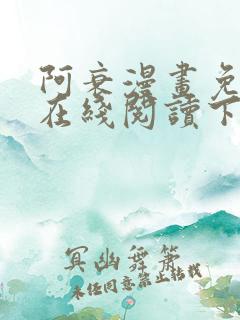 阿衰漫畫免
在綫閱讀下
冥幽舞簫
未經同意禁止轉載